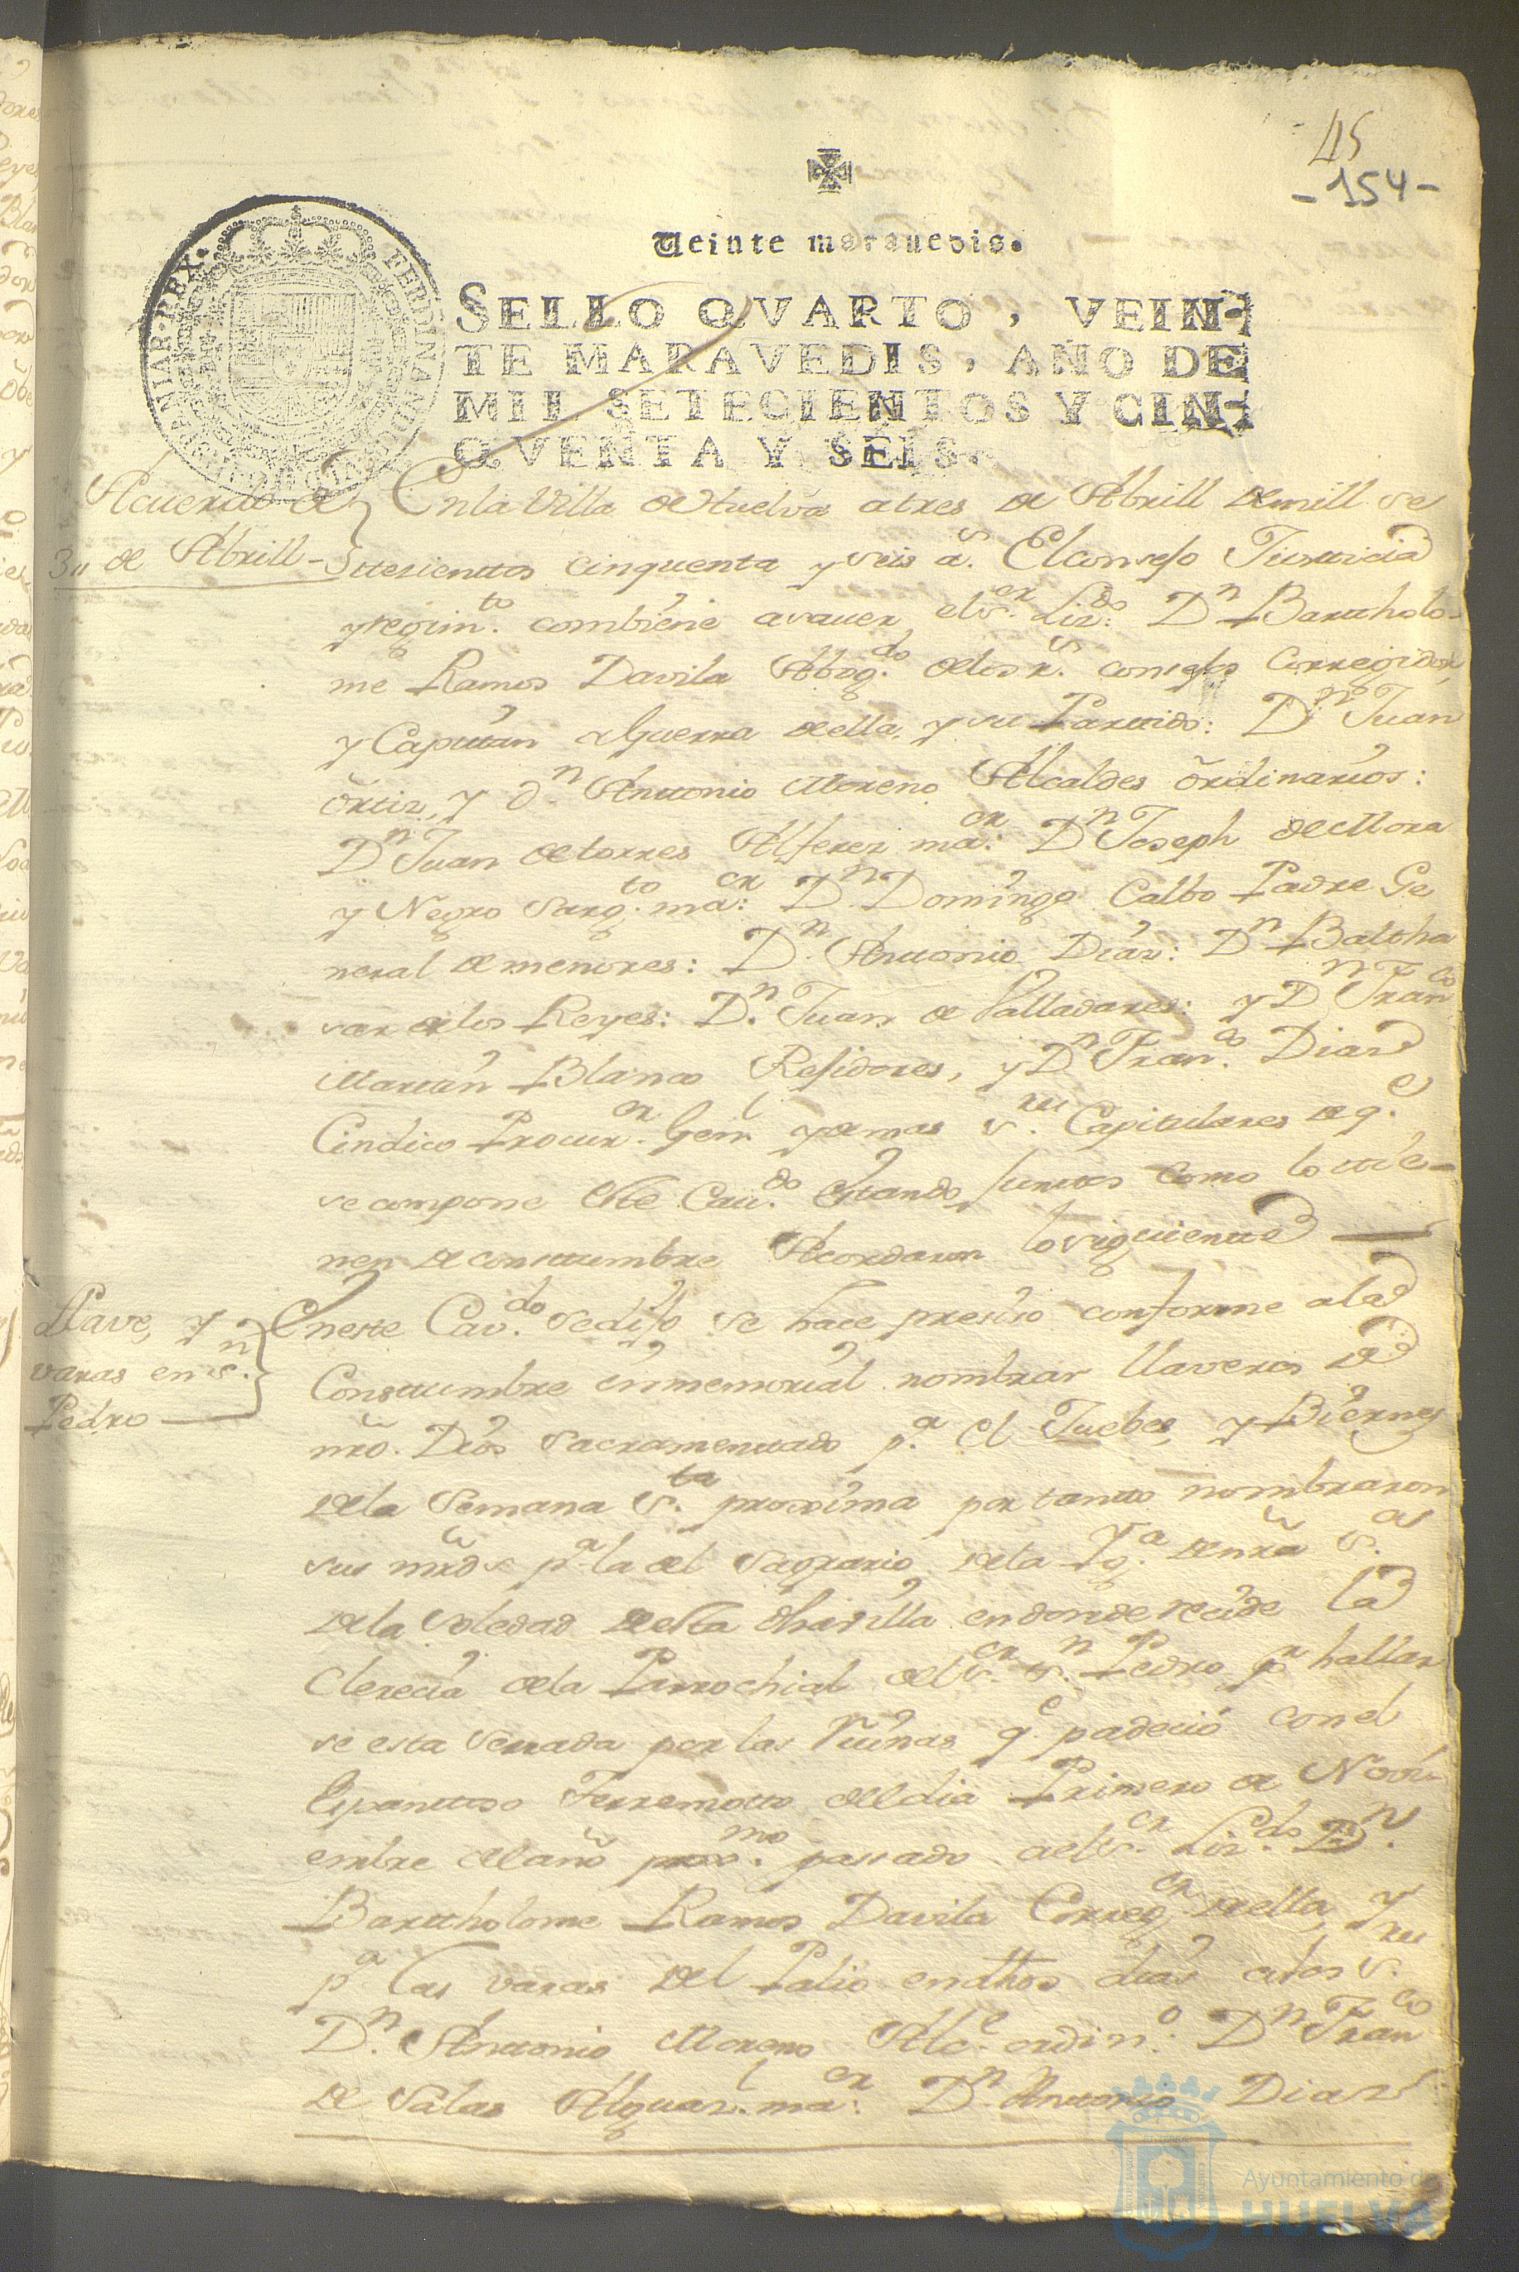 45
-154-
Veinte maravedis.
SELLO QVARTO, VEIN-
TE MARAVEDIS, AÑO DE
MIL SETECIENTOS Y CIN-
QVENTA Y SEIS.
FERDINANDUS
HISPANIAR. REX.
Acuerdo de
3,, de Abrill
En la Villa de Huelva a tres de Abrill de mill se
ttecienttos cinquenta y seis as. El consejo Justticia
y regimto. combiene a saver el sr. Lizdo. Dn Barttholo-
me Ramos Davila Abogdo. de los rs. consejos Corregidor,
y Capittan a Guerra della, y su Parttido: Dn Juan
Ortiz, y dn Anttonio Moreno Alcaldes ordinarios:
Dn Juan de torres Alferez maor: Dn Joseph de Mora
y Negro Sargto. maor: Dn Domingo Calbo Padre Ge
neral de menores: Dn. Anttonio Diaz: Dn Baltha
sar de los Reyes: Dn. Juan de Valladares: y Dn Franco
Marttin Blanco Rejidores, y Dn Franco. Diaz
Cindico Procuror. Genl. y demas sres. Capitulares de qe.
se compone este Cavdo. estando junttos como lo ttie-
nen de costtumbre Acordaron lo siguientte
Llave, y
varas en sn.
Pedro
En este Cavdo. se dijo se hace presiso conforme a la
Consttumbre inmemorial nombrar llaveros de
nro. Dios Sacramenttado pa. el Juebes, y Biernes
de la Semana Sta. proxima por tantto nombraron
sus mrds pa la del Sagrario de la Yga. de nra Sa.
de la Soledad desta dha villa en donde recide la
Clerecia de la Parrochial del sr. sn. Pedro pr hallar
se esta serrada por las Ruinas qe padeció con el
Espanttoso Terremotto del dia Primero de Novi-
embre del año proxmo. passado al sr. Lizdo. Dn.
Barttholome Ramos Davila Corregor. della, y
pa las varas del Palio en dhos dias a los sres.
Dn. Anttonio Moreno Alce. ordino. Dn Franco
de Salas Alguazl. maor: Dn. Anttonio Diaz
Ayuntamiento de
HUELVA